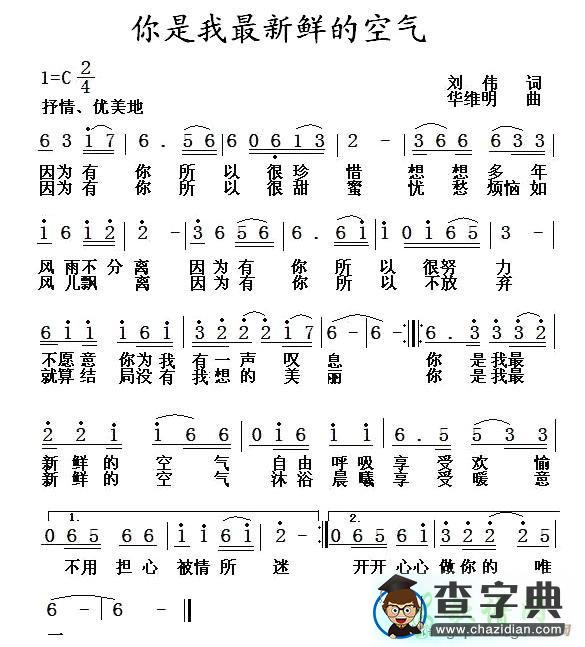 你是我最新鲜的空气
1=C 2/4
刘伟 词
抒情、优美地
华维明 曲
6 3 i 7 | 6. 5 6 | 6 0 6 1 3 | 2 - | 3 6 6 3 6 6 |
因为有 你所以很珍惜 想想多年
因为有 你所以很甜蜜 忧愁烦恼如
i 6 i 2 | 2 - | 3 6 5 6 | 6. 6 i | i 0 i 6 5 | 3 - |
风雨不分离 因为有 你所以很努力
风儿飘离 因为有 你所以不放弃
6 i i i 6 i | 3 2 2 2 2 i 7 | 6 - | 6 - :| 6. 3 3 3 2 |
不愿意你为我有一声叹息 你是我最
就算结局没有我想的美丽 你是我最
2 2 i | i 6 6 | 0 i 6 i i | 6. 5 5 3 3 |
新鲜的空气 自由呼吸享受欢愉
新鲜的空气 沐浴晨曦享受暖意
1. 2.
0 6 5 6 6 | i i 6 i | 2 - :| 0 6 5 6 i | 3 2 2 2 5 |
不用担心被情所迷 开开心心做你的唯
6 - | 6 - ||
一
查字典
www.chazidian.com